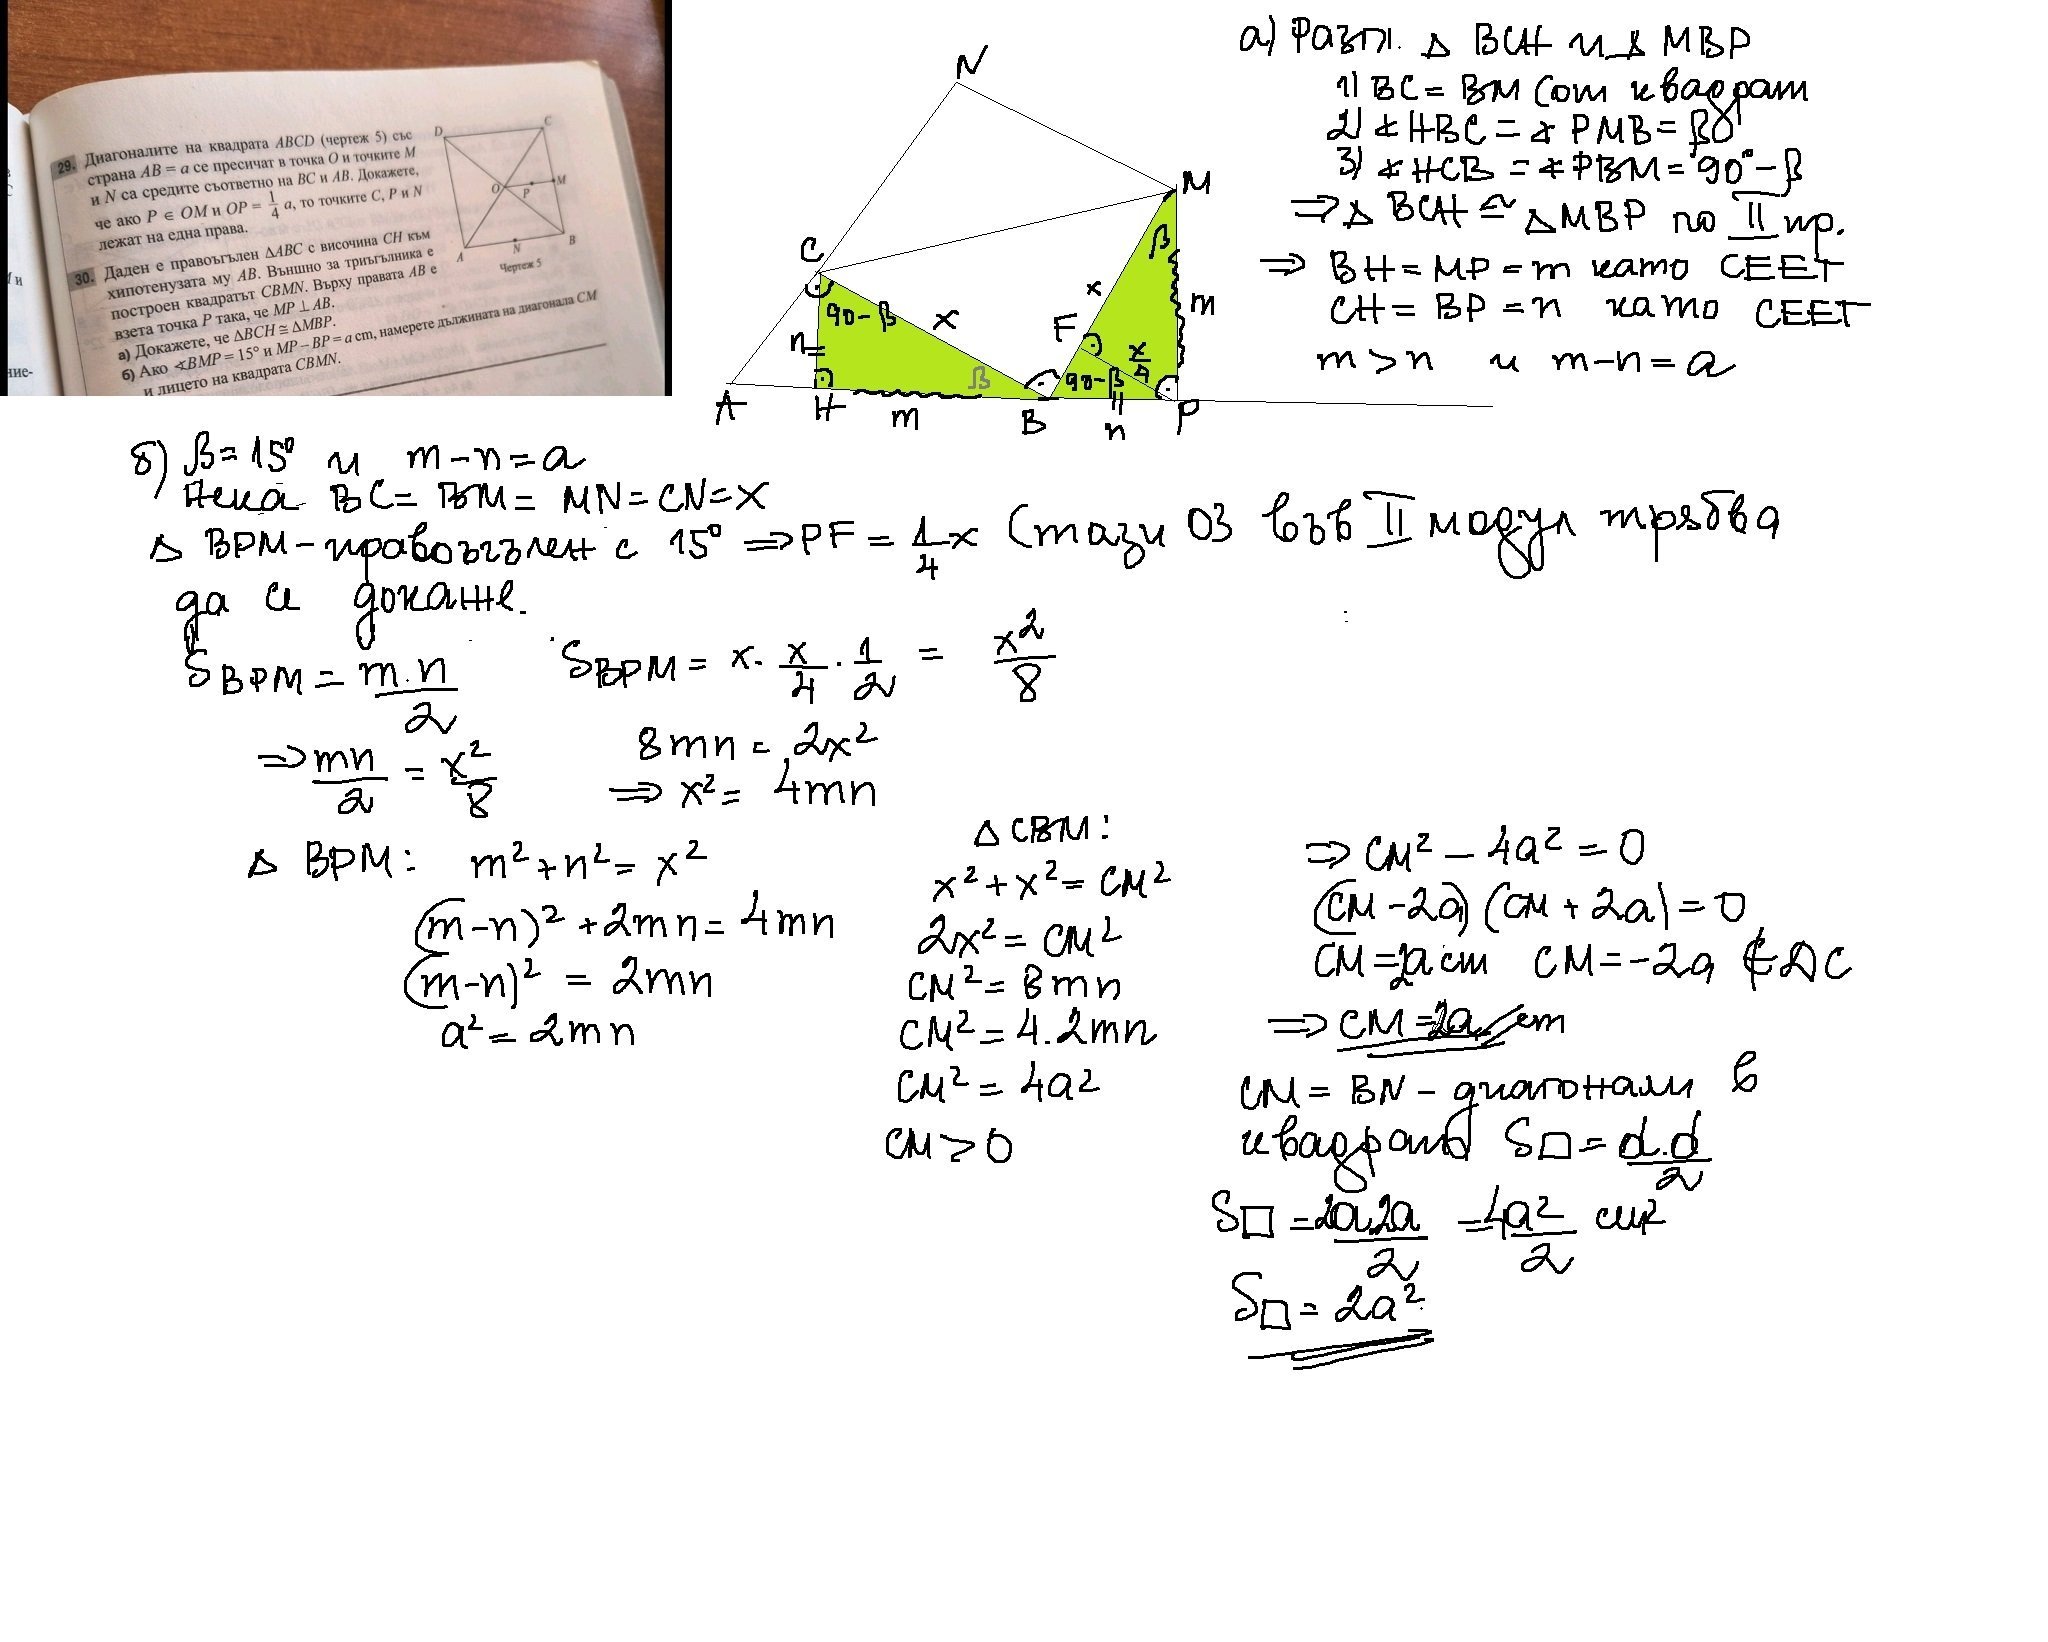 29. Диагоналите на квадрата ABCD (чертеж 5) със
страна AB = a се пресичат в точка O и точките M
и N са средите съответно на BC и AB. Докажете,
че ако P ∈ OM и OP = 1/4 a, то точките C, P и N
лежат на една права.
30. Даден е правоъгълен △ABC с височина CH към
хипотенузата му AB. Външно за триъгълника е
построен квадратът CBMN. Върху правата AB е
взета точка P така, че MP ⊥ AB.
а) Докажете, че △BCH ≅ △MBP.
б) Ако ∢BMP = 15° и MP – BP = a cm, намерете дължината на диагонала CM
и лицето на квадрата CBMN.
D
C
O
P
M
A
N
B
Чертеж 5
ние-
N
M
C
β
90-β
x
x
m
F
n
x/4
β
90-β
A
H
m
B
n
P
а) Разгл. △ BCH и △ MBP
1) BC = BM (от квадрат
2) ∢ HBC = ∢ PMB = β
3) ∢ HCB = ∢ PBM = 90° - β
⇒ △ BCH ≅ △ MBP по II пр.
⇒ BH = MP = m като СЕЕТ
CH = BP = n като СЕЕТ
m > n и m - n = a
б) β = 15° и m - n = a
Нека BC = BM = MN = CN = x
△ BPM - правоъгълен с 15° ⇒ PF = 1/4 x (тази ОЗ във II модул трябва
да се докаже.
S BPM = m.n/2 S BPM = x. x/4 . 1/2 = x²/8
⇒ mn/2 = x²/8 8mn = 2x²
⇒ x² = 4mn
△ BPM: m² + n² = x²
(m-n)² + 2mn = 4mn
(m-n)² = 2mn
a² = 2mn
△ CBM:
x² + x² = CM²
2x² = CM²
CM² = 8mn
CM² = 4.2mn
CM² = 4a²
CM > 0
⇒ CM² - 4a² = 0
(CM - 2a) (CM + 2a) = 0
CM = 2a cm CM = -2a ∉ ДС
⇒ CM = 2a cm
CM = BN - диагонали в
квадрата S□ = d.d/2
S□ = 2a.2a/2 = 4a²/2 cm²
S□ = 2a²